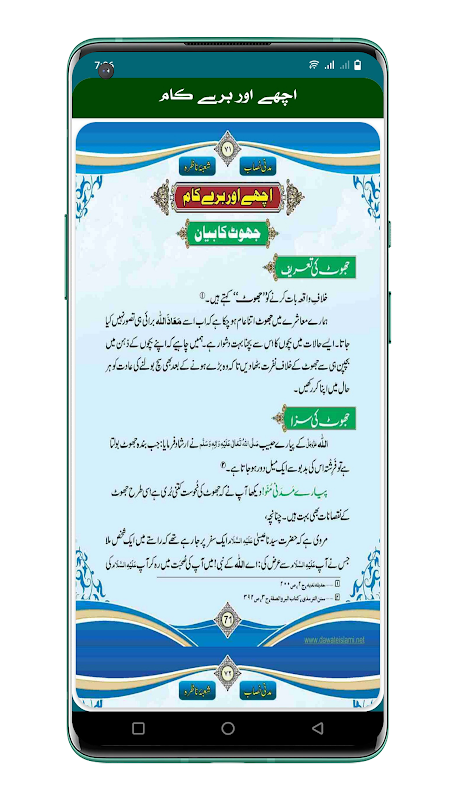 7:26
اچھے اور برے کام
۷۱
مدنی نصاب
شعبۂ ناظرہ
اچھے اور برے کام
جھوٹ کا بیان
جھوٹ کی تعریف
خلافِ واقعہ بات کرنے کو ”جھوٹ“ کہتے ہیں۔ ①
ہمارے معاشرے میں جھوٹ اتنا عام ہو چکا ہے کہ اب اسے مَعَاذَ اللہ برائی ہی تصور نہیں کیا
جاتا۔ ایسے حالات میں بچوں کا اس سے بچنا بہت دشوار ہے۔ ہمیں چاہیے کہ اپنے بچوں کے ذہن میں
بچپن ہی سے جھوٹ کے خلاف نفرت بٹھا دیں تاکہ وہ بڑے ہونے کے بعد بھی سچ بولنے کی عادت کو ہر
حال میں اپنا کر رکھیں۔
جھوٹ کی سزا
اللہ عَزَّوَجَلَّ کے پیارے حبیب صَلَّی اللہُ تَعَالٰی عَلَیْہِ وَاٰلِہٖ وَسَلَّم نے ارشاد فرمایا: جب بندہ جھوٹ بولتا
ہے تو فرشتہ اس کی بدبو سے ایک میل دور ہو جاتا ہے۔ ②
پیارے مَدَنی مُنّو! دیکھا آپ نے کہ جھوٹ کی نُحوست کتنی بُری ہے اسی طرح جھوٹ
کے نقصانات بھی بہت ہیں۔ چنانچہ،
مروی ہے کہ حضرت سیدنا عیسیٰ عَلَیْہِ السَّلَام ایک سفر پر جا رہے تھے کہ راستے میں ایک شخص ملا
جس نے آپ عَلَیْہِ السَّلَام سے عرض کی: اے اللہ کے نبی! میں آپ کی صُحبت میں رہ کر آپ عَلَیْہِ السَّلَام کی
① ..... ج ۲، ص ۲۰۰
② ..... سنن الترمذی، کتاب البر والصلۃ، ج ۳، ص ۳۹۲
71
www.dawateislami.net
۷۲
مدنی نصاب
شعبۂ ناظرہ